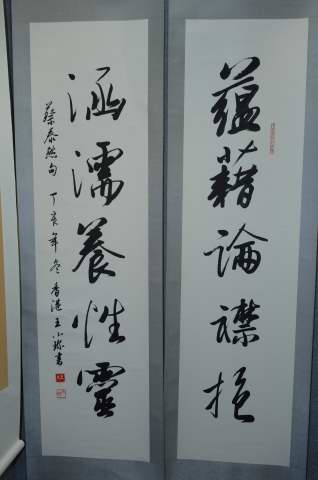 蕴藉論襟抱
涵濡養性靈
蔡泰然句 丁亥年冬 香港王小